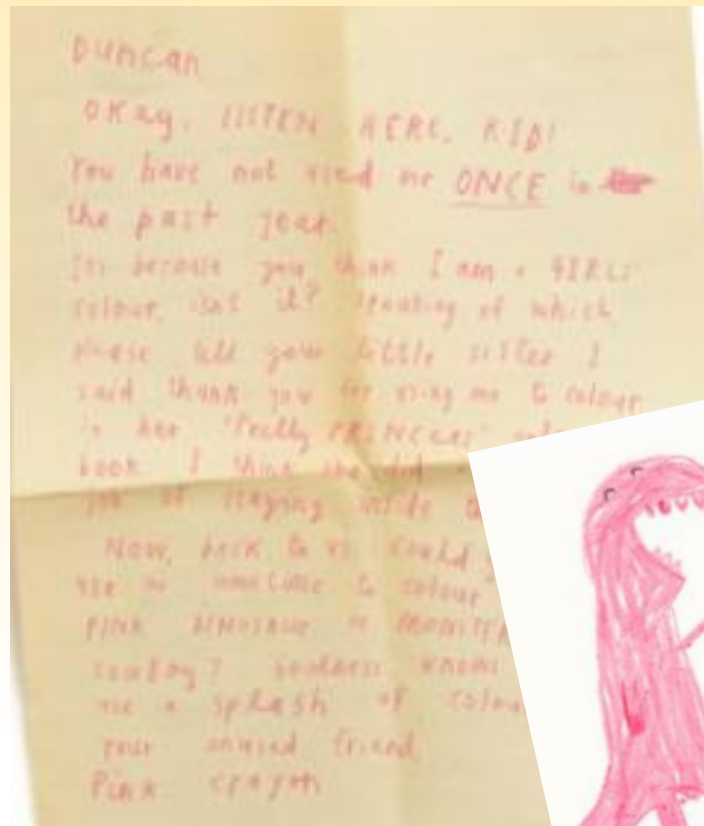 Duncan
Okay, LISTEN HERE, KID!
You have not used me ONCE in
the past year.
Its because you think I am a GIRLS
colour, isnt it? Speaking of which
please tell your little sister I
said thank you for using me to colour
in her "Pretty PRINCESS"
book. I think she did
job of staying inside
Now, back to us. Could
use me sometime to colour
PINK DINOSAUR or MONSTER
cowboy? Goodness knows
use a splash of colour
your unused friend,
Pink crayon